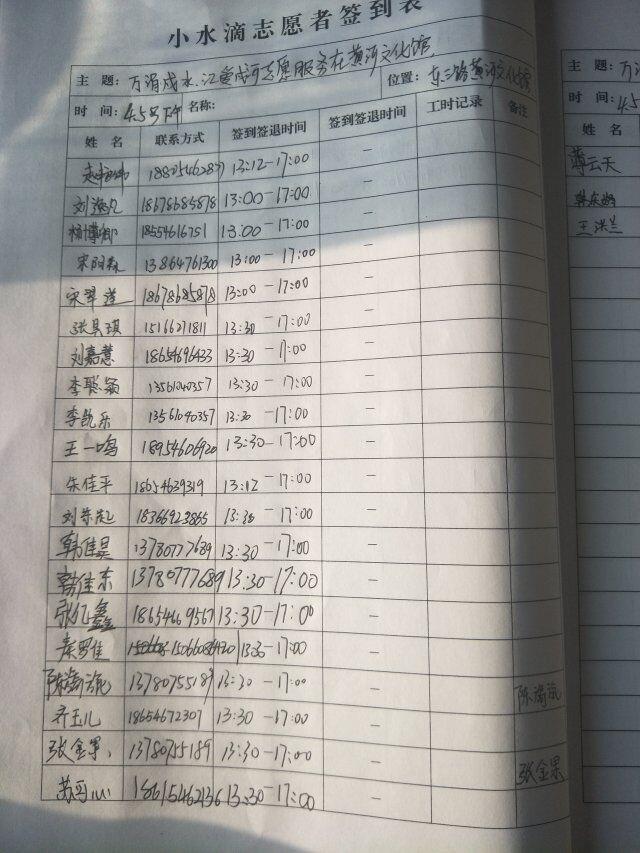 小水滴志愿者签到表
主 题: 万涓成水.江爱成河志愿服务在黄河文化馆 位置: 东三路黄河文化馆
时 间: 4.5号下午 名称:
姓 名 联系方式 签到签退时间 签到签退时间 工时记录 备注
13:12-17:00 —
刘海凡 18678685878 13:00-17:00 —
18554616751 13:00-17:00 —
13864761300 13:00-17:00 —
宋翠莲 18678685878 13:00-17:00 —
张昊琪 15166271811 13:30-17:00 —
刘嘉慧 18654696433 13:30-17:00 —
李聪 13561040357 13:30-17:00 —
李凯乐 13561040357 13:30-17:00 —
王一鸣 18954606920 13:30-17:00 —
朱佳平 18654639319 13:12-17:00 —
18366923865 13:30-17:00 —
韩佳昊 13780777689 13:30-17:00 —
韩佳东 13780777689 13:30-17:00 —
张亿鑫 18654669567 13:30-17:00 —
15066086920 13:30-17:00 —
陈 1378075518 13:30-17:00 — 陈
齐玉儿 18654672307 13:30-17:00 —
张金果 13780755189 13:30-17:00 — 张金果
苏可心 18615462136 13:30-17:00 —
主 题: 万涓
时 间: 4.5
姓 名
薄云天
王洪兰